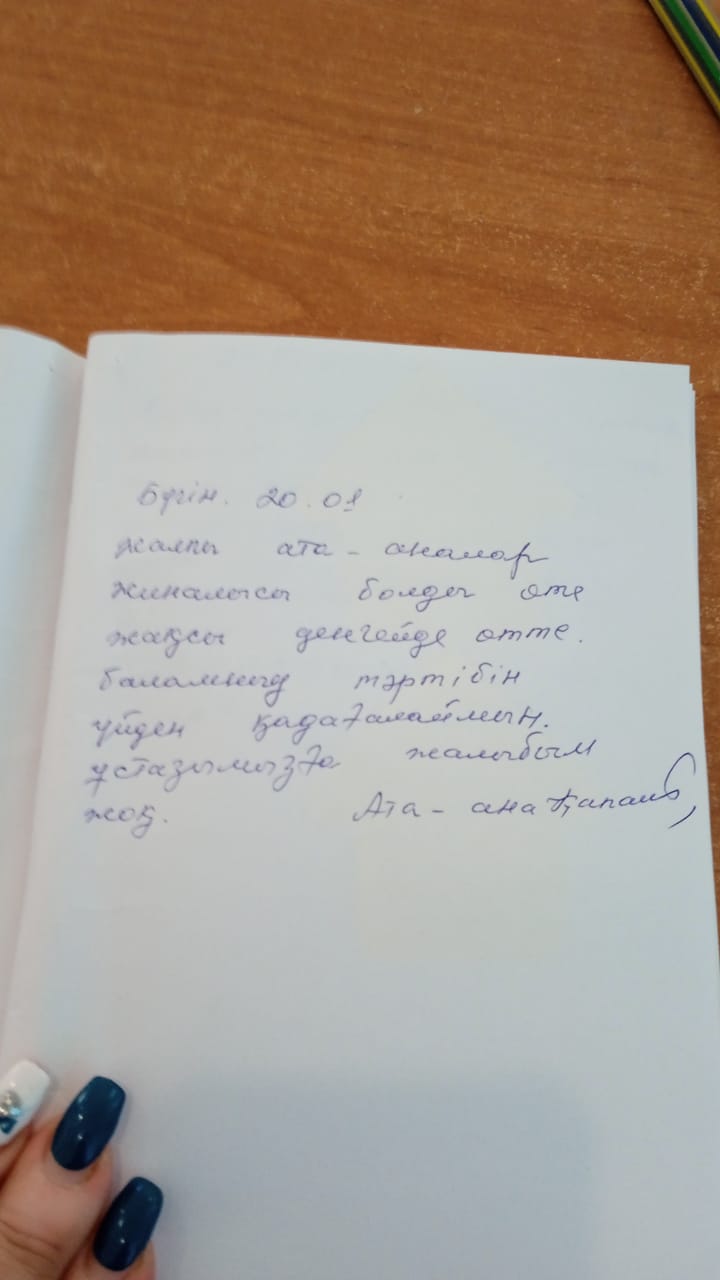 Бүгін. 20.01
жалпы ата - аналар
жиналысы болды өте
жақсы денгейде өтте.
баламның тәртібін
үйден қадағалаймын.
ұстазымызға жалыбым
жоқ. Ата - ана